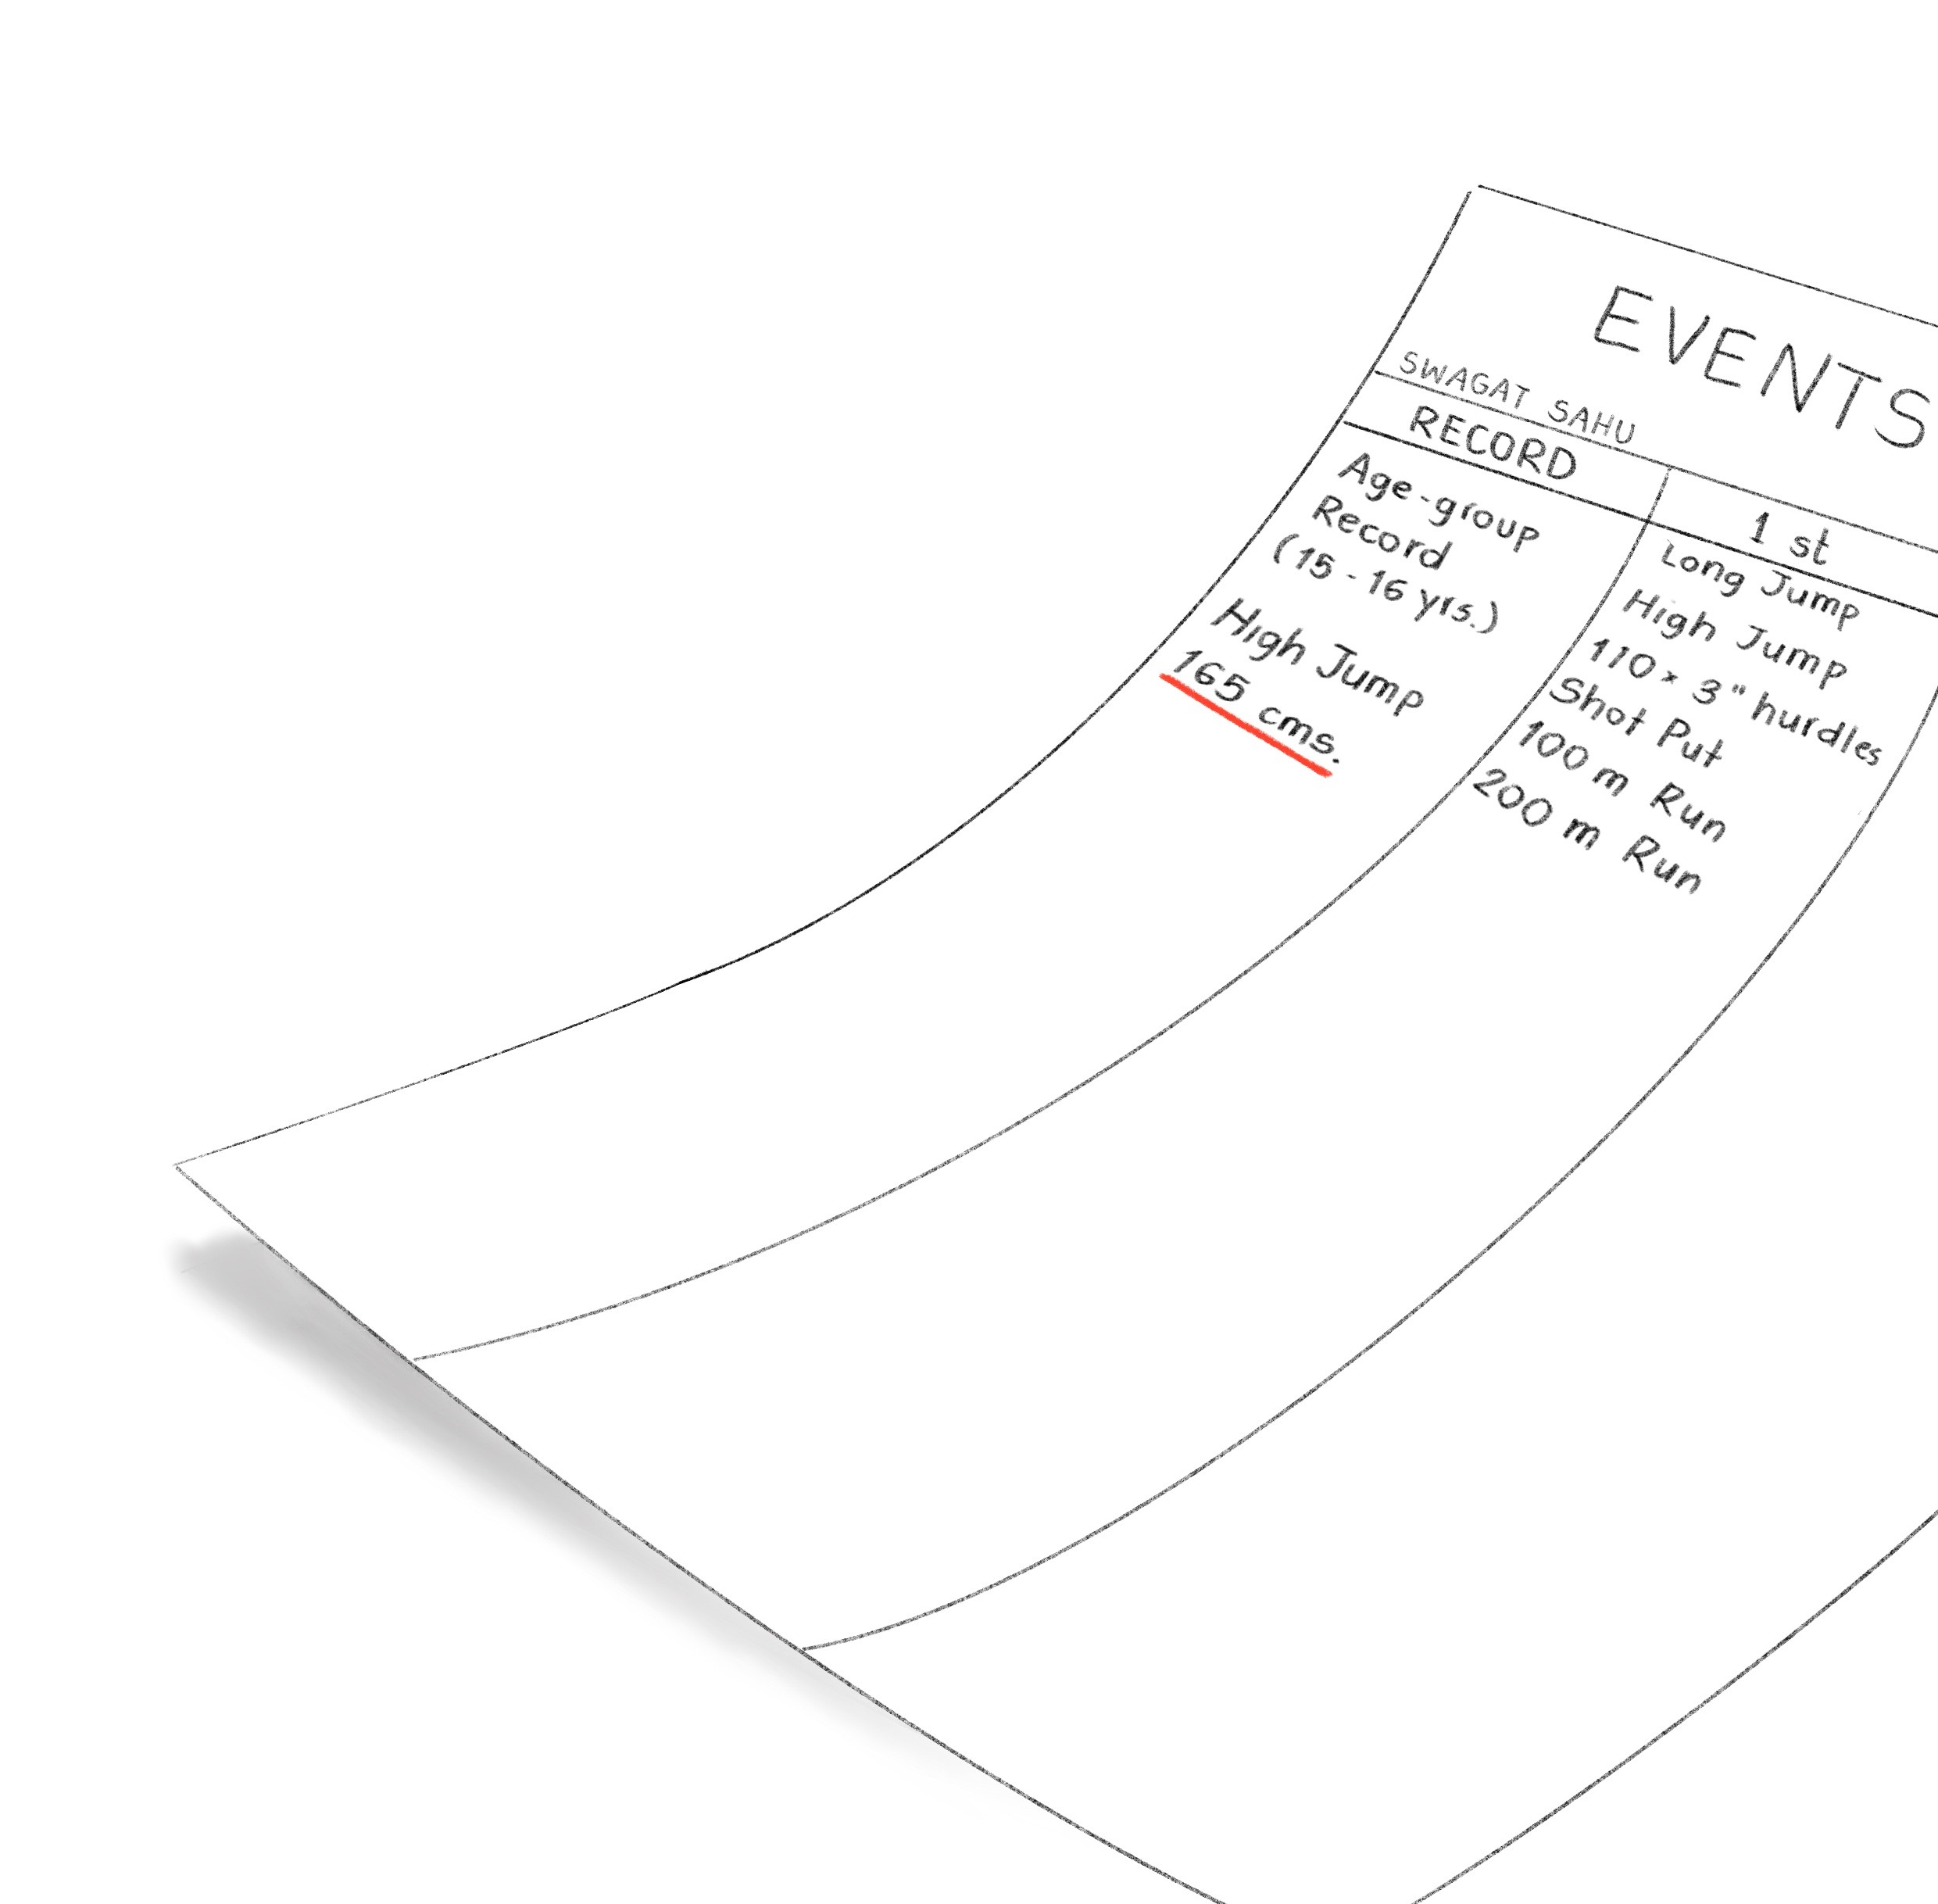 EVENTS
SWAGAT SAHU
RECORD
Age-group
Record
(15 - 16 yrs.)
High Jump
165 cms.
1 st
Long Jump
High Jump
110 × 3" hurdles
Shot Put
100 m Run
200 m Run